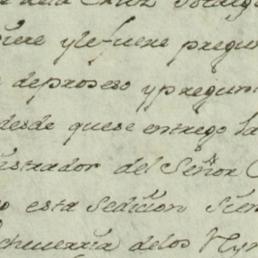 dela Cruz
piere yle fuere pregun
deproseso ypregun
desde quese entrego la
istrador del Señor C
esta Sedicion sien
chevarria delos Myn